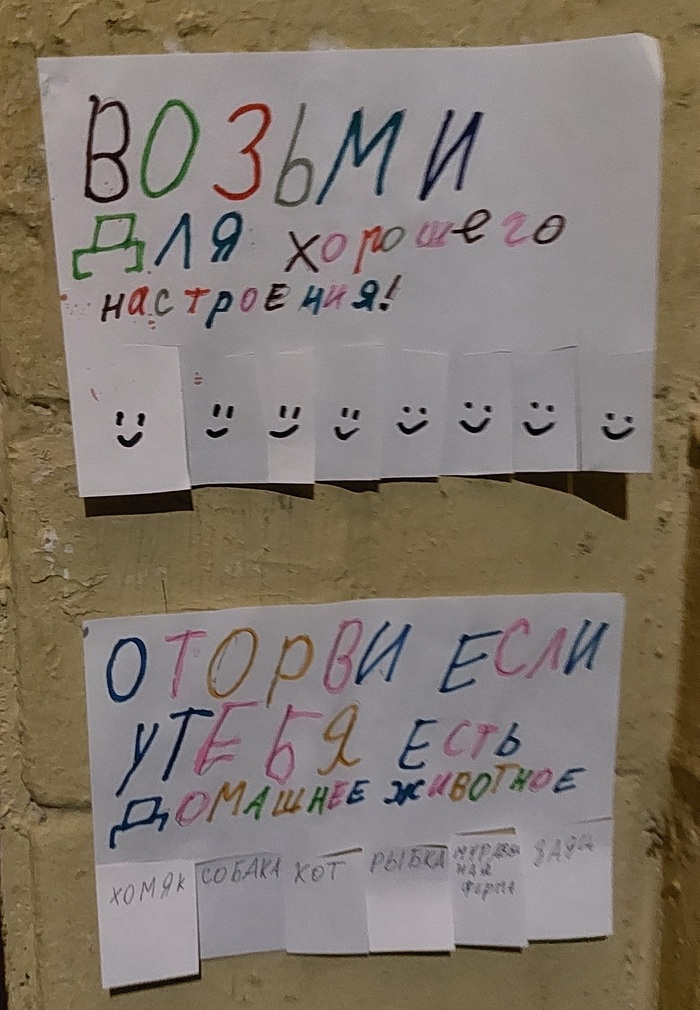 ВОЗЬМИ
ДЛЯ хорошего
настроения!
ОТОРВИ ЕСЛИ
У ТЕБЯ ЕСТЬ
ДОМАШНЕЕ ЖИВОТНОЕ
ХОМЯК
СОБАКА
КОТ
РЫБКА
МУРАВЬИ
НАЯ
ФЕРМА